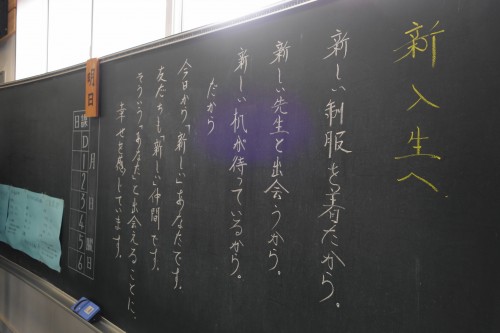 新入生へ
新しい制服を着たから。
新しい先生と出会うから。
新しい机が待っているから。
だから
今日から「新しい」あなたです。
友だちも新しい仲間です。
そういう「あなた」と出会えることに、
幸せを感じています。
明日
月
日
曜日
日課
D
1
2
3
4
5
6